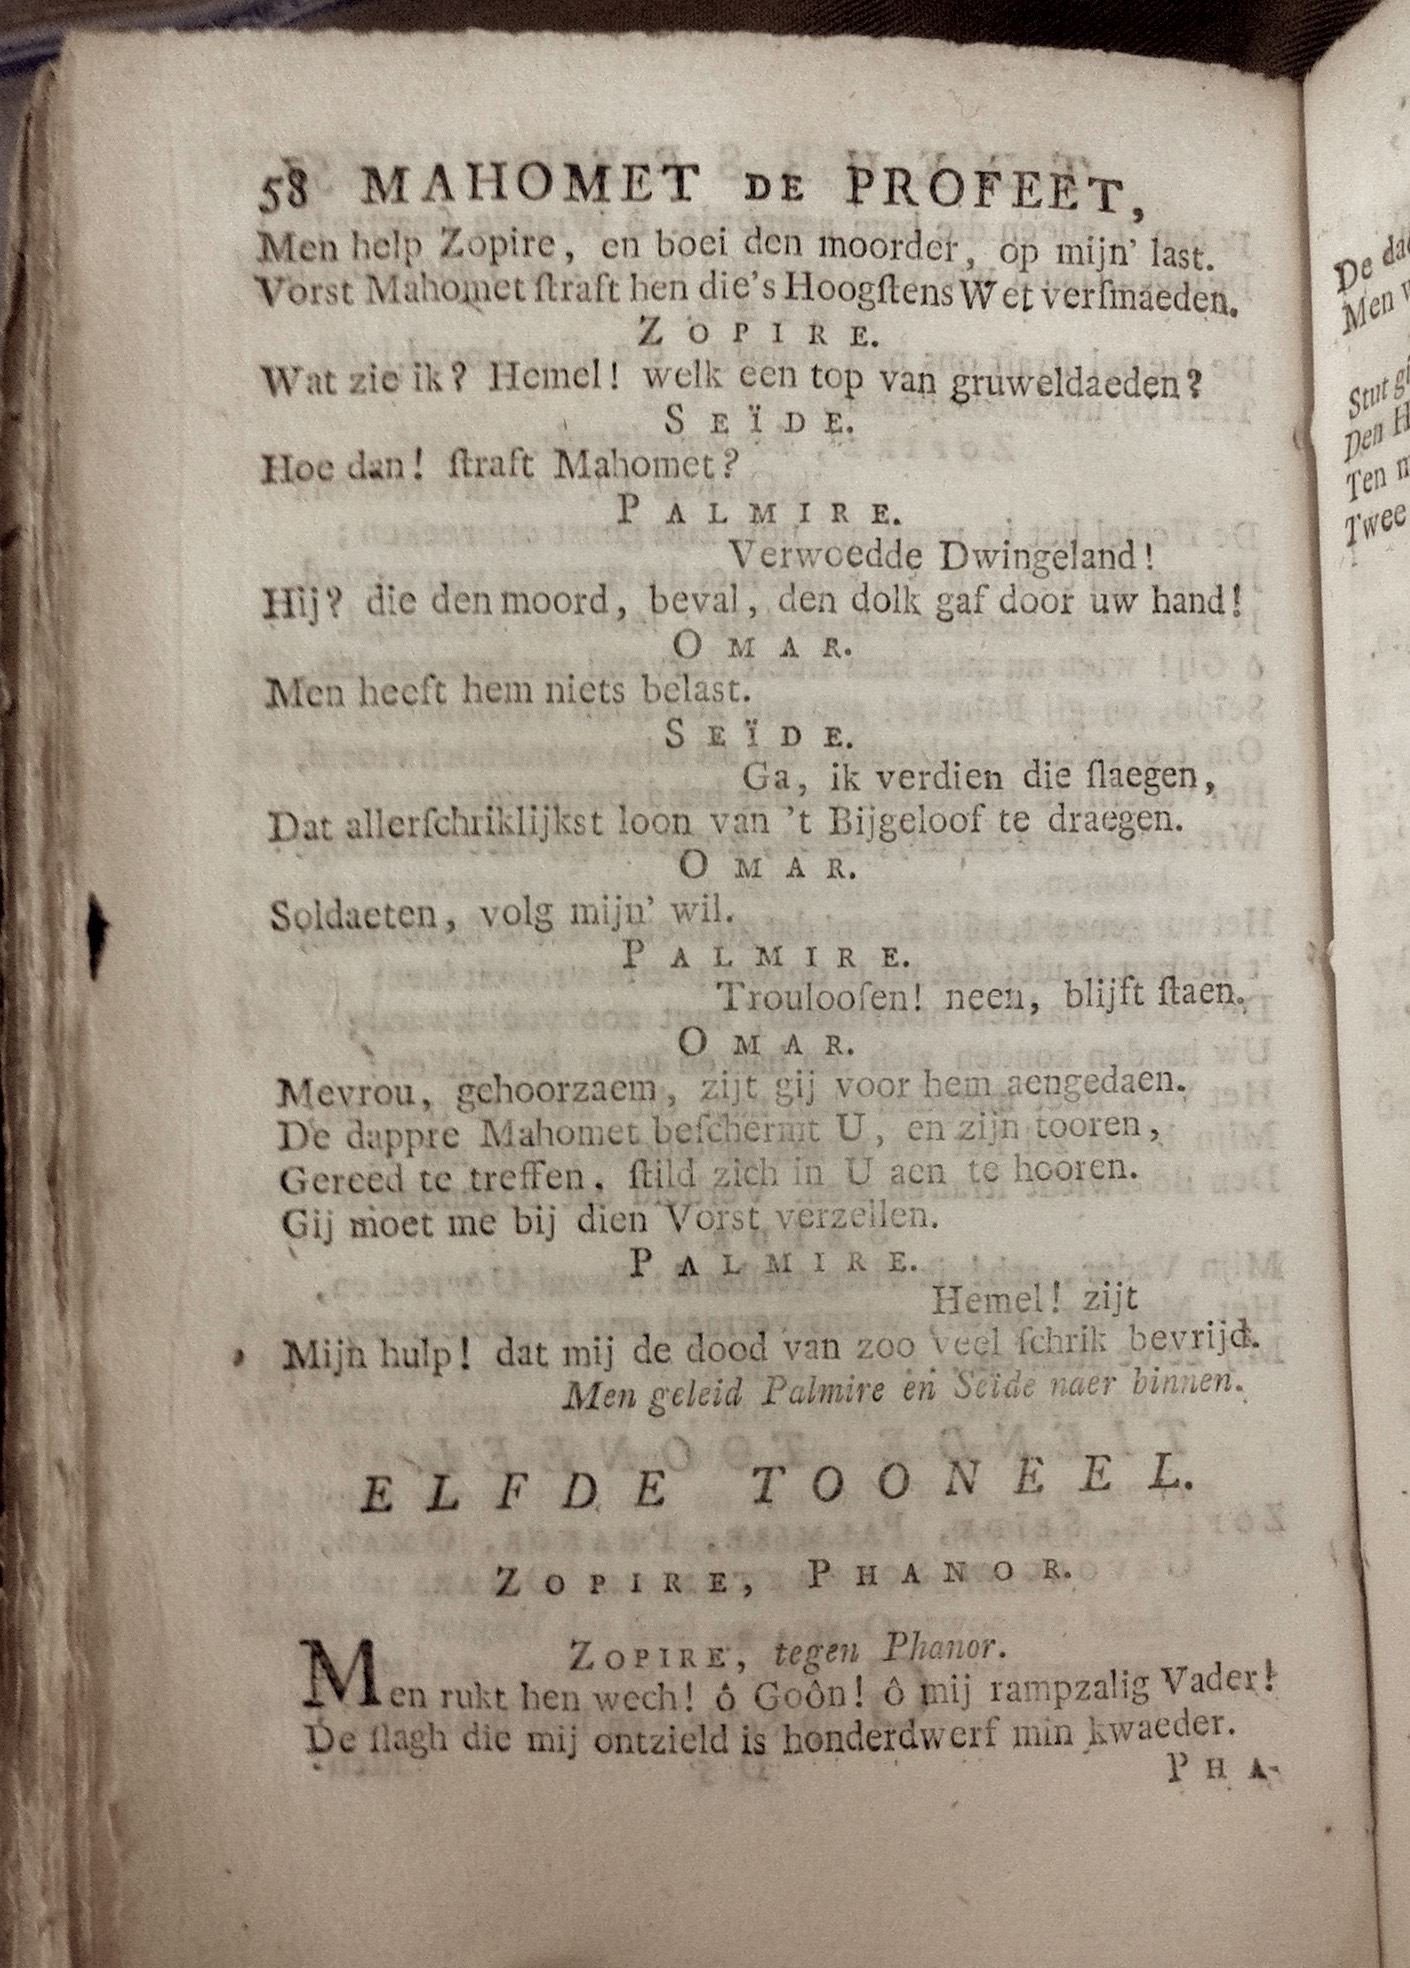 58 MAHOMET DE PROFEET,
Men help Zopire, en boei den moorder, op mijn' last.
Vorst Mahomet ſtraft hen die's Hoogſtens Wet verſmaeden.
ZOPIRE.
Wat zie ik? Hemel! welk een top van gruweldaeden?
SEÏDE.
Hoe dan! ſtraft Mahomet?
PALMIRE.
Verwoedde Dwingeland!
Hij? die den moord, beval, den dolk gaf door uw hand!
OMAR.
Men heeft hem niets belast.
SEÏDE.
Ga, ik verdien die ſlaegen,
Dat allerſchriklijkst loon van 't Bijgeloof te draegen.
OMAR.
Soldaeten, volg mijn' wil.
PALMIRE.
Troulooſen! neen, blijft ſtaen.
OMAR.
Mevrou, gehoorzaem, zijt gij voor hem aengedaen.
De dappre Mahomet beſchermt U, en zijn tooren,
Gereed te treffen, ſtild zich in U aen te hooren.
Gij moet me bij dien Vorst verzellen.
PALMIRE.
Hemel! zijt
Mijn hulp! dat mij de dood van zoo veel ſchrik bevrijd.
Men geleid Palmire en Seïde naer binnen.
ELFDE TOONEEL.
ZOPIRE, PHANOR.
ZOPIRE, tegen Phanor.
Men rukt hen wech! ô Goôn! ô mij rampzalig Vader!
De ſlagh die mij ontzield is honderdwerf min kwaeder.
PHA-
De
Men
Stut
Den
Ten
Twee